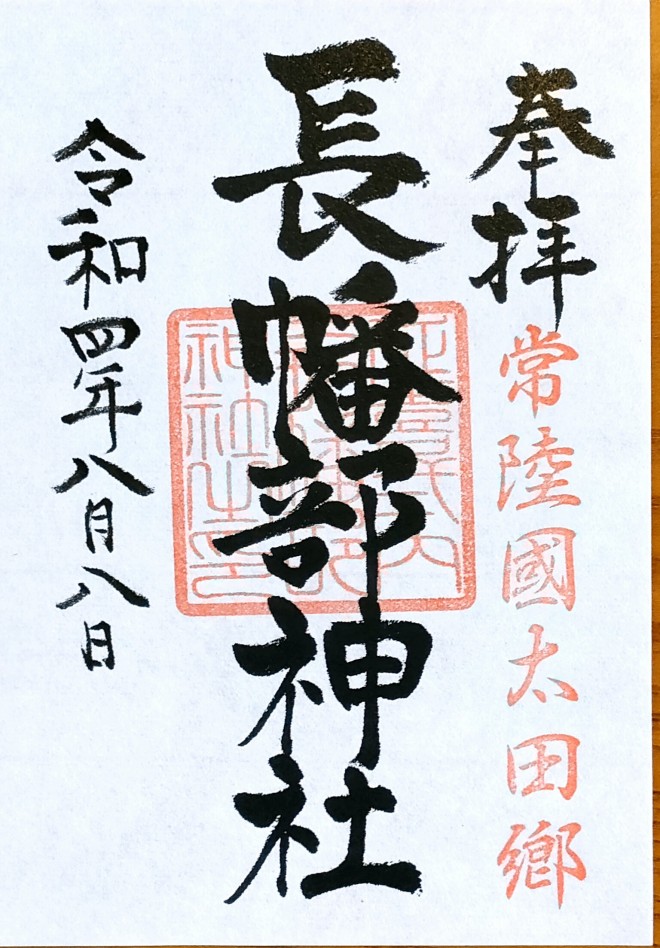 奉拝
常陸國太田鄉
長幡部神社
令和四年八月八日